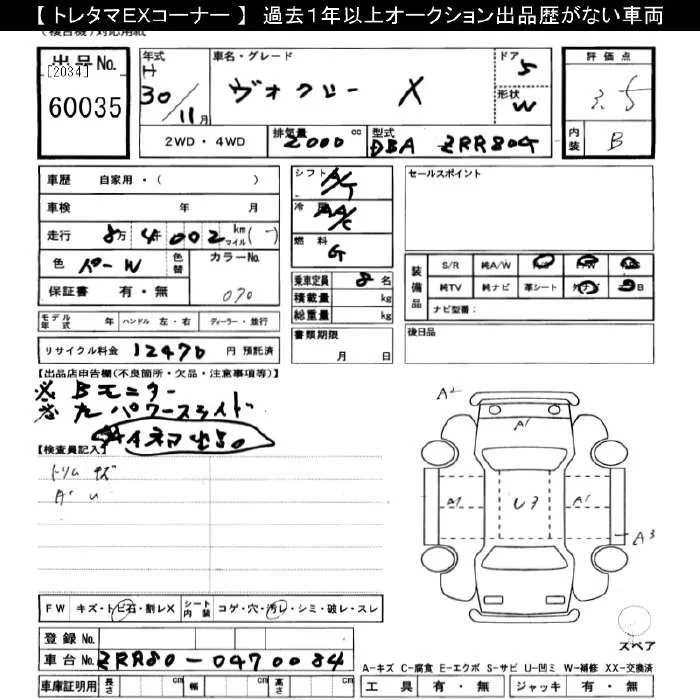 【 トレタマＥＸコーナー 】 過去１年以上オークション出品歴がない車両
出品No.
[2034]
60035
年式
H
30/11月
車名・グレード
ヴォクシー X
ドア
5
形状
W
評価点
3.5
内装
B
2WD・4WD
排気量
2000 cc
型式
DBA ZRR80G
車歴 自家用・( )
車検 年 月
走行 8万4千002 km マイル (-)
色 パールW
色替
カラーNo.
070
保証書 有・無
シフト
A/T
冷房
AA/C
燃料
G
乗車定員 8名
積載量 kg
総重量 kg
書類期限
月 日
セールスポイント
装備品
S/R 純A/W P/S P/W ABS
純TV 純ナビ 革シート 外ナビ B
ナビ型番:
後日品
モデル年式 年 ハンドル 左・右 ディーラー・並行
リサイクル料金 12470 円 預託済
【出品店申告欄(不良箇所・欠品・注意事項等)】
※ Bモニター
※ 左パワースライド
【検査員記入】
トリム キズ
FW キズ・トビ石・割レX
シート内装
コゲ・穴・汚レ・シミ・破レ・スレ
登録 No.
車台 No. ZRR80-0470084
車庫証明用 長さ cm 幅 cm 高さ cm
A2
A1
A1
U3
A1
A3
スペア
A-キズ C-腐食 E-エクボ S-サビ U-凹ミ W-補修 XX-交換済
工具 有・無 ジャッキ 有・無